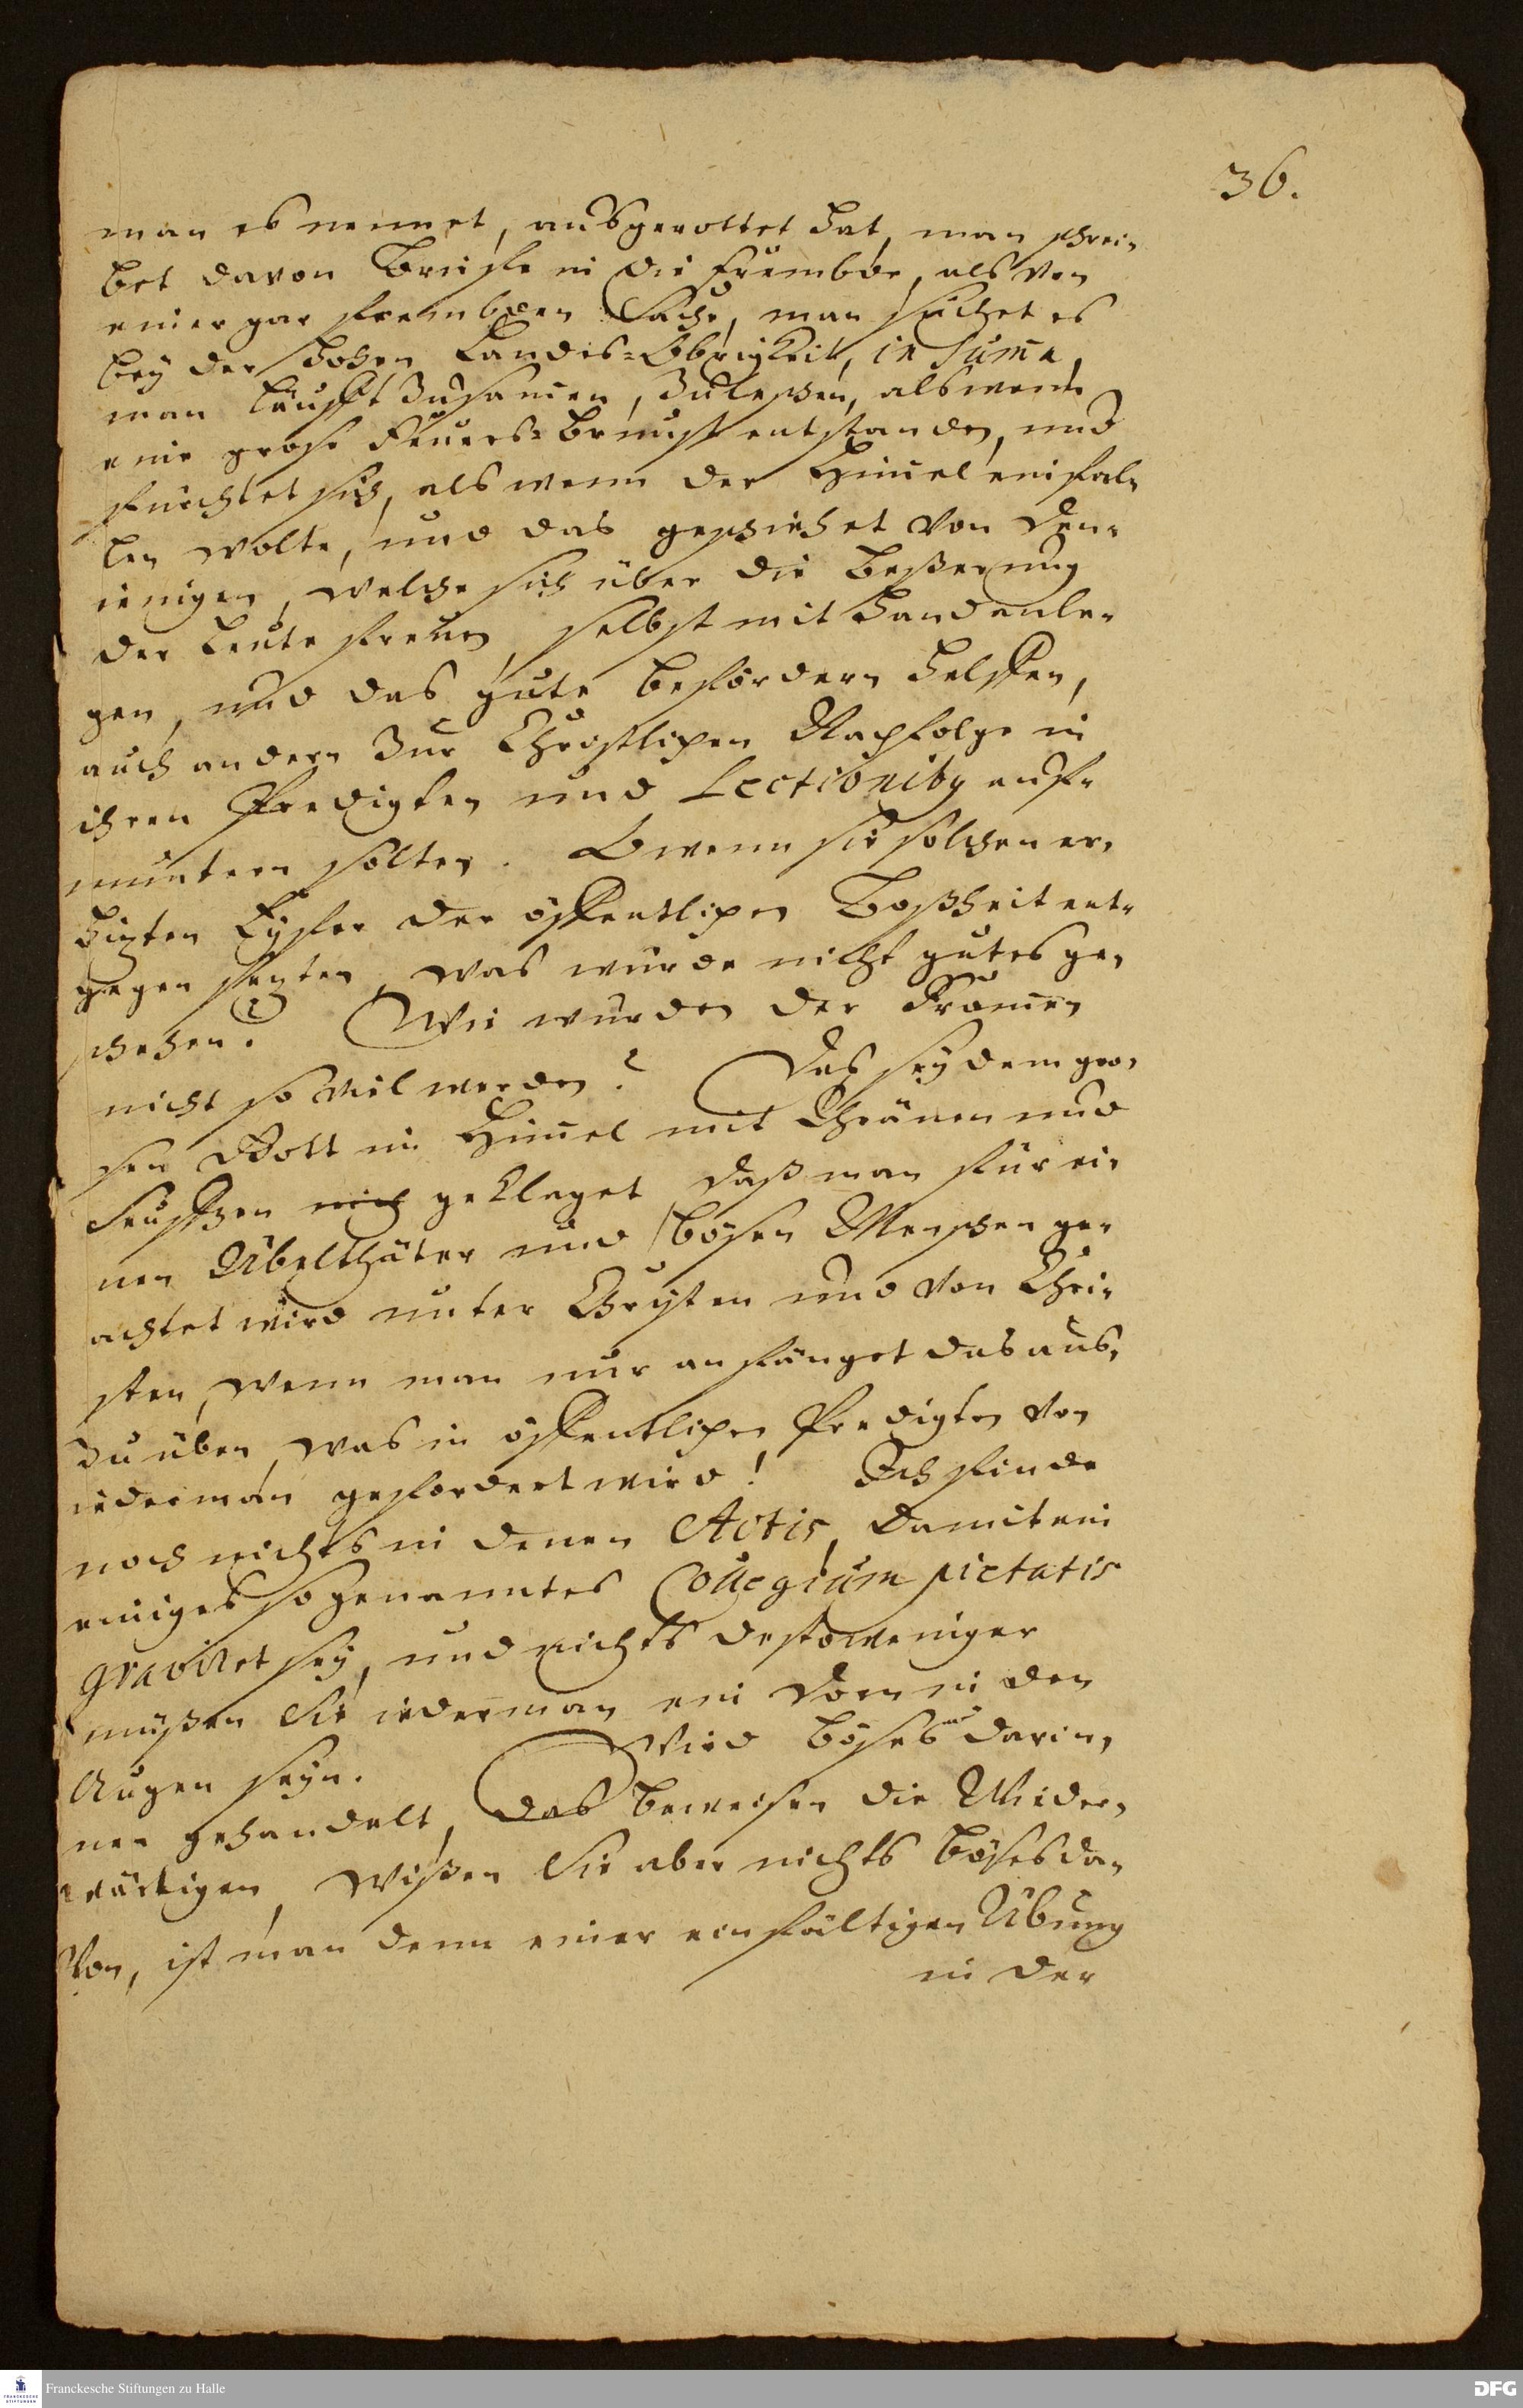 36.
man es nennet, ausgerottet hat, man schrei-
bet davon Brieffe in die frembde, als von
einer gar frembden Sache, man suchet es
bey der hohen Landes-Obrigkeit, in Suma,
man läufft zusamen, zuleschen, als wenn
eine große Feuers-Brunst entstanden, und
fürchtet sich, als wenn der Himel einfal-
len wolte, und das geschiehet von den-
ienigen, welche sich über die Beßerung
der Leute freuen, selbst mit Hand anle-
gen, und das gute befördern helffen,
auch andern zur Christlichen Nachfolge in
ihren Predigten und Lectionibus auff-
muntern solten. O wenn sie solchen er-
hizten Eyffer der öffentlichen Boßheit ent-
gegen sezten, was würde nicht gutes ge-
schehen? Wie würden der Fromen
nicht so viel werden? Das sey dem gro-
sen Gott im Himel mit Thränen und
Seuffzen geklaget, daß man für ei-
nen Übelthäter und bösen Menschen ge-
achtet wird unter Christen und von Chri-
sten, wenn man nur anfänget das aus-
zuüben, was in öffentlichen Predigten von
iederman gefordert wird! Ich finde
noch nichts in denen Actis, damit ein
einiges so genanntes Collegium pietatis
graviret sey, und nichts destoweniger
müßen Sie iederman ein Dorn in den
Augen seyn. Wird böses darin-
nen gehandelt, das beweisen die Wider-
wärtigen, wißen Sie aber nichts böses da-
von, ist man denn einer einfältigen Übung
in der
Franckesche Stiftungen zu Halle
DFG